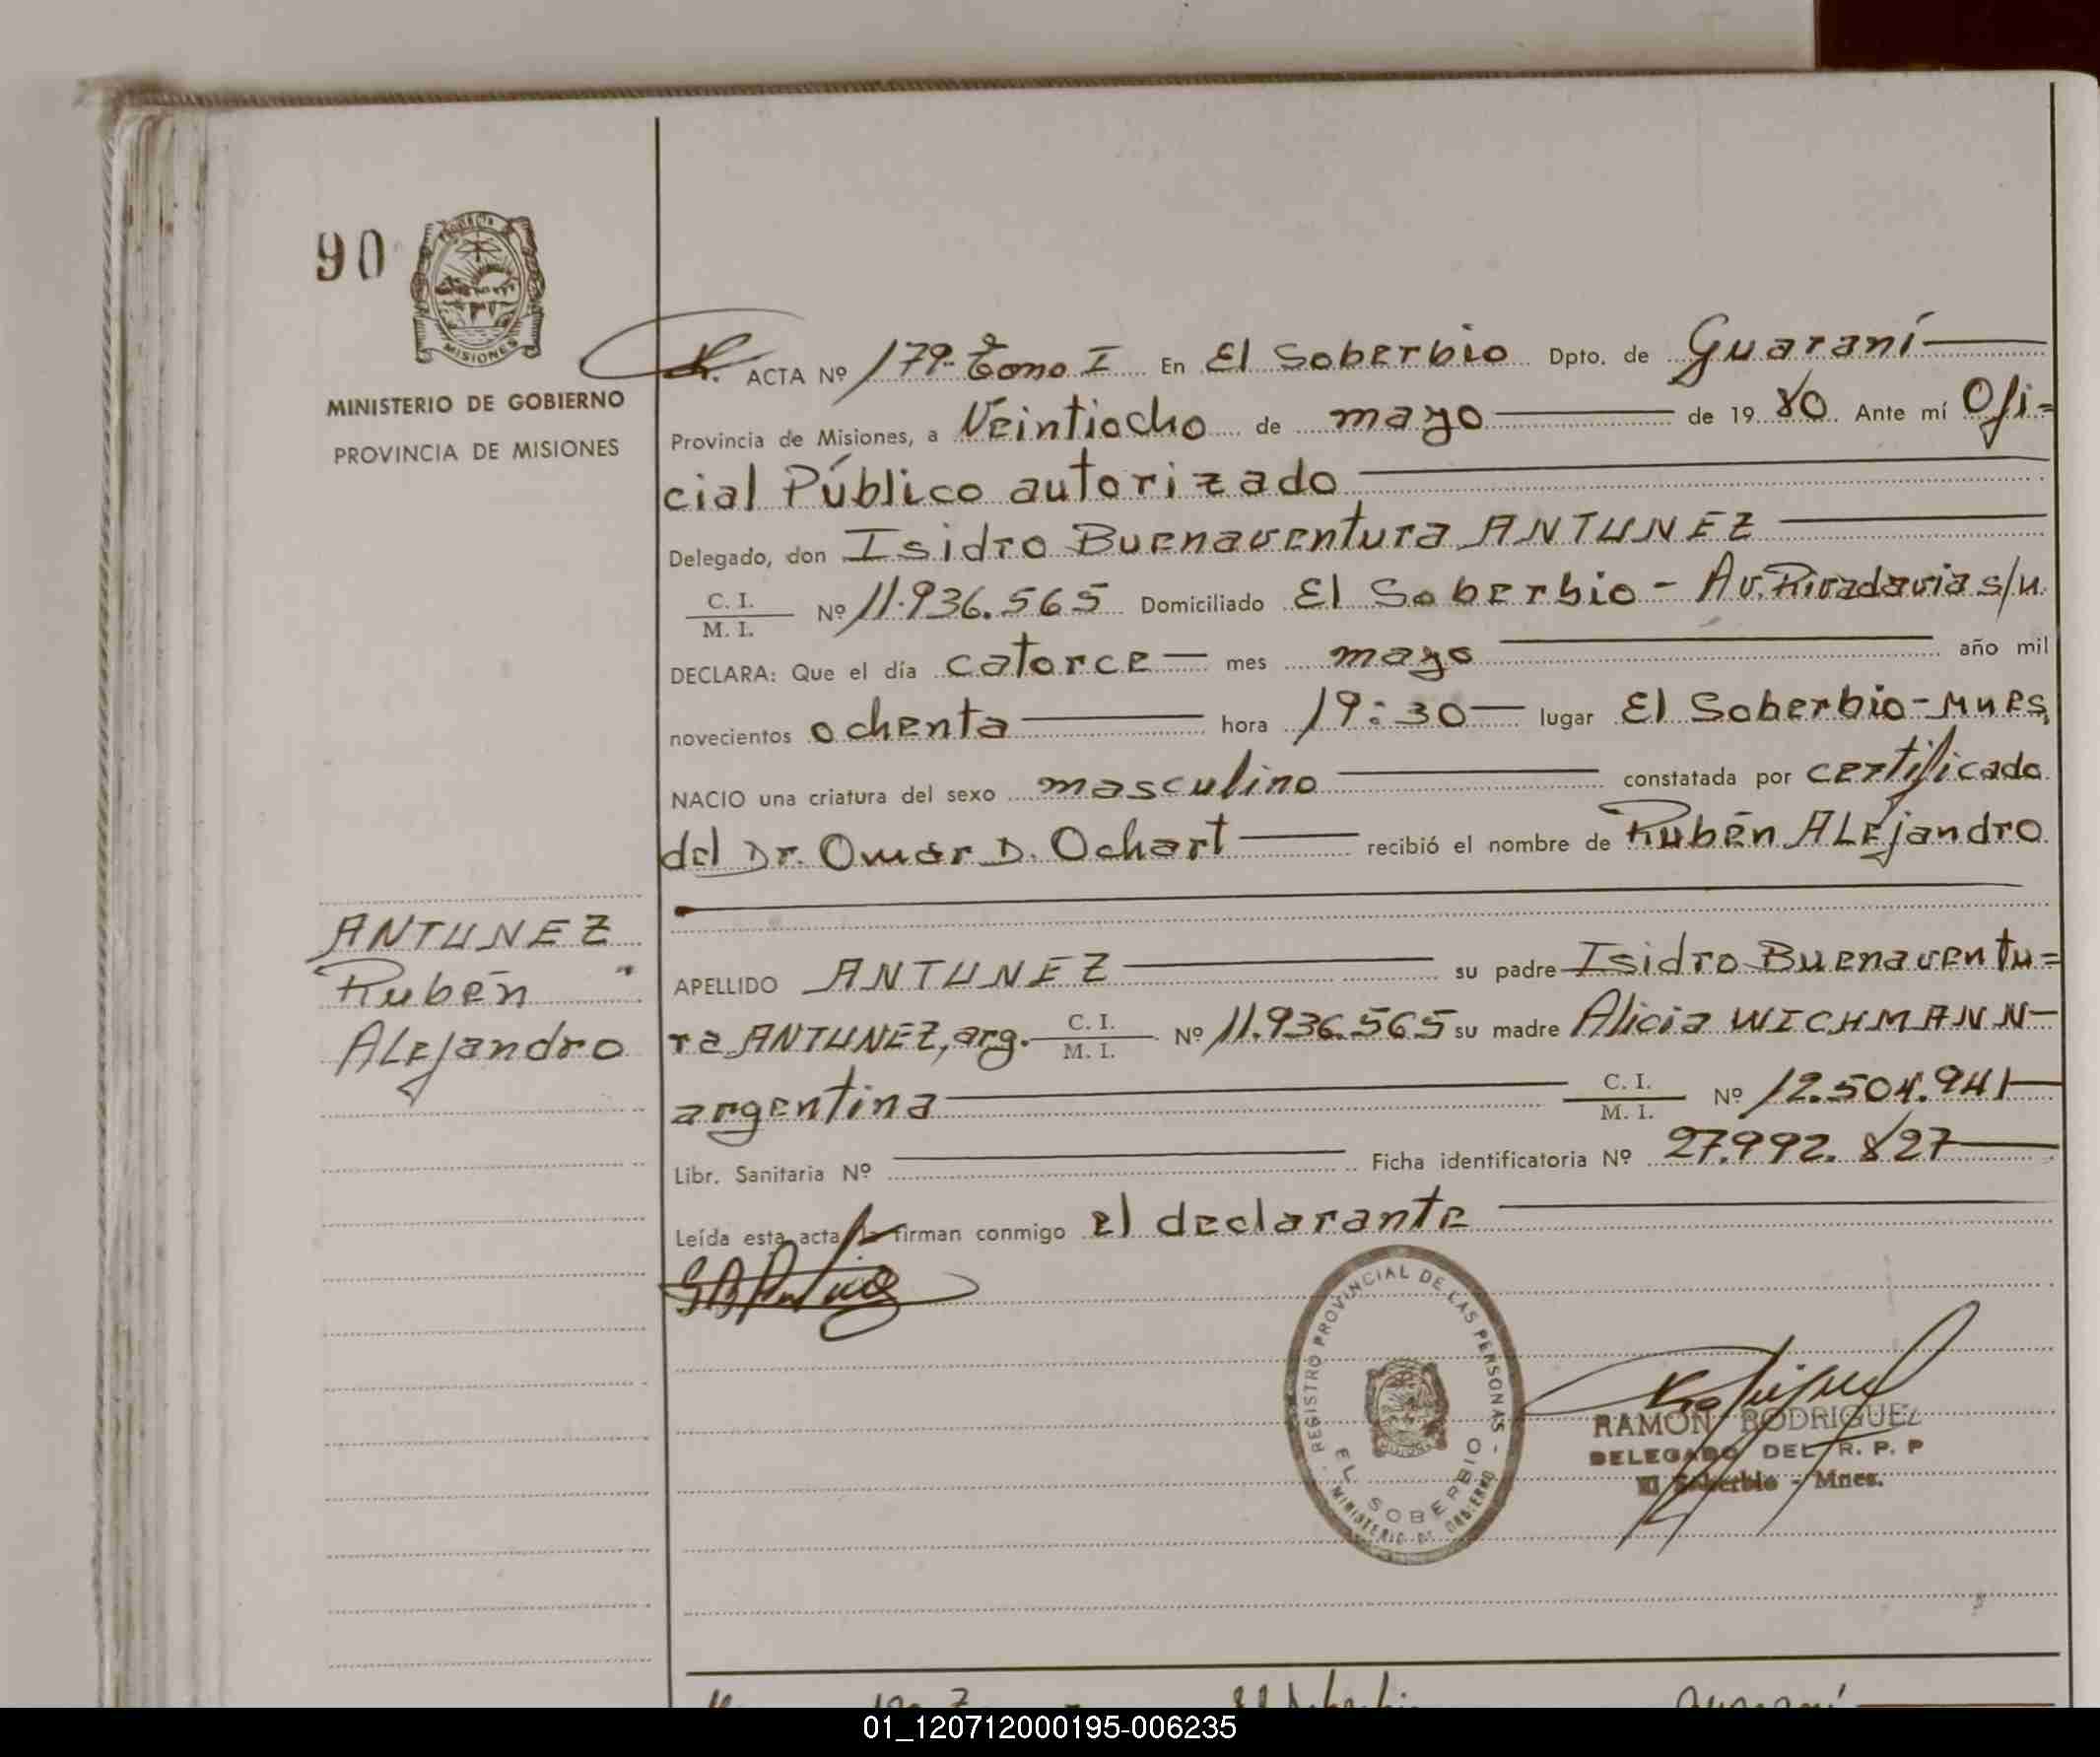 90
MISIONES
MINISTERIO DE GOBIERNO
PROVINCIA DE MISIONES
ACTA Nº 179- Tomo I En El Soberbio Dpto. de Guaraní
Provincia de Misiones, a Veintiocho de mayo de 19 80 Ante mí Ofi=
cial Público autorizado
Delegado, don Isidro Buenaventura ANTUNEZ
C. I.
M. I. Nº 11.936.565 Domiciliado El Soberbio - Av. Rivadavia s/n.
DECLARA: Que el día catorce mes mayo año mil
novecientos ochenta hora 19:30 lugar El Soberbio-Mnes,
NACIO una criatura del sexo masculino constatada por certificado
del Dr. Omar D. Ochart recibió el nombre de Rubén ALejandro
ANTUNEZ
Rubén
ALejandro
APELLIDO ANTUNEZ su padre Isidro Buenaventu=
ra ANTUNEZ, arg. C. I.
M. I. Nº 11.936.565 su madre Alicia WICHMANN-
argentina C. I.
M. I. Nº 12.504.941
Libr. Sanitaria Nº Ficha identificatoria Nº 27.992.827
Leída esta acta la firman conmigo el declarante
REGISTRO PROVINCIAL DE LAS PERSONAS -
EL SOBERBIO
MINISTERIO DE GOBIERNO
RAMON RODRIGUEZ
DELEGADO DEL R. P. P
El Soberbio - Mnes.
01_120712000195-006235